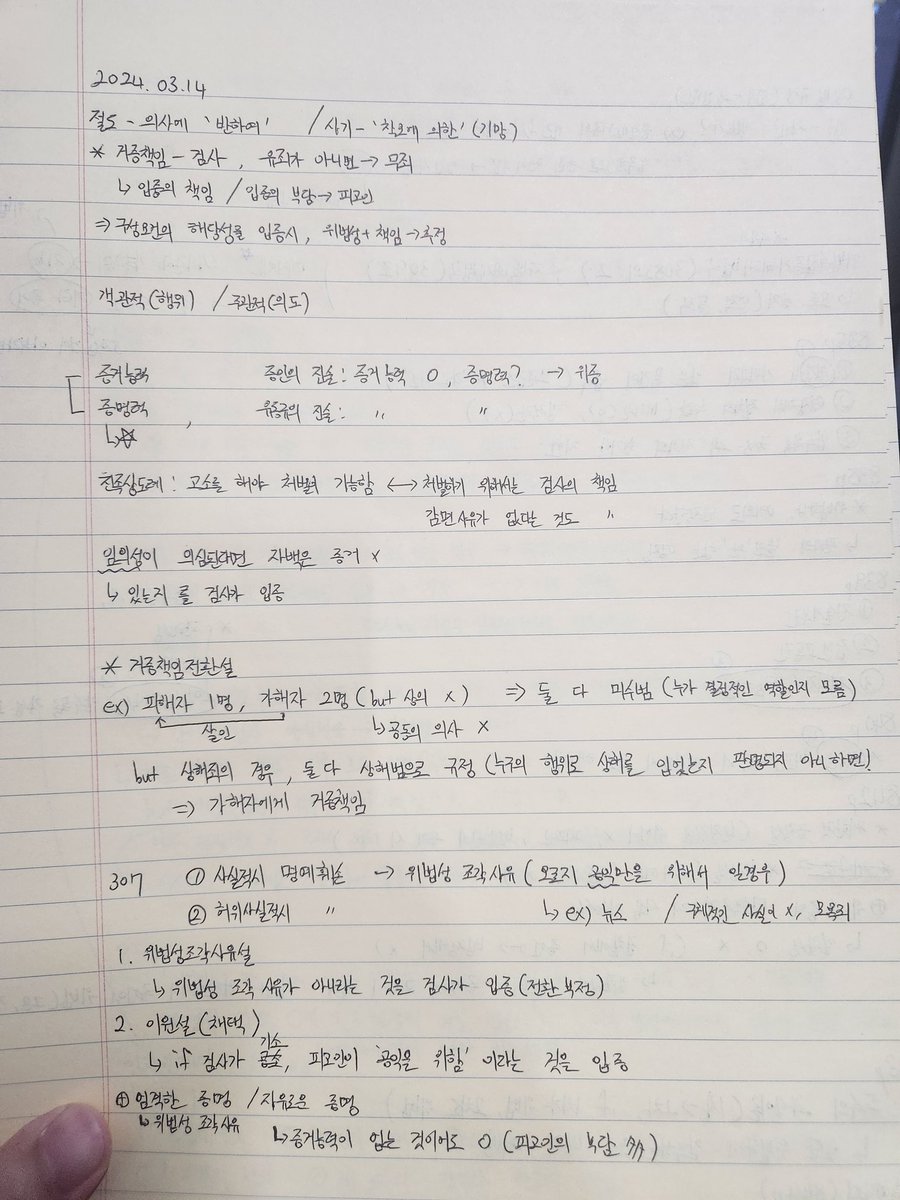 2024. 03.14
절도 - 의사에 '반하여' / 사기 - '착오에 의한' (기망)
* 거증책임 - 검사, 유죄가 아니면 → 무죄
↳ 입증의 책임 / 입증의 부담 → 피고인
⇒ 구성요건의 해당성을 입증시, 위법성 + 책임 → 추정
객관적 (행위) / 주관적 (의도)
증거능력 증인의 진술 : 증거능력 O, 증명력? → 위증
증명력, 유동규의 진술 : 〃 〃
↳ ☆
친족상도례 : 고소를 해야 처벌이 가능함 ↔ 처벌하기 위해서는 검사의 책임
감면사유가 없다는 것도 〃
임의성이 의심된다면 자백은 증거 x
↳ 있는지를 검사가 입증
* 거증책임전환설
ex) 피해자 1명, 가해자 2명 (but 상의 x) ⇒ 둘 다 미수범 (누가 결정적인 역할인지 모름)
살인 ↳ 공동의 의사 X
but 상해죄의 경우, 둘 다 상해범으로 규정 (누구의 행위로 상해를 입었는지 판명되지 아니하면!)
⇒ 가해자에게 거증책임
307 ① 사실적시 명예훼손 → 위법성 조각사유 (오로지 공익만을 위해서 일경우)
② 허위사실적시 〃 ↳ ex) 뉴스 / 구체적인 사실이 x, 모욕죄
1. 위법성조각사유설
↳ 위법성 조각 사유가 아니라는 것을 검사가 입증 (전환 부정)
2. 이원설 (채택)
기소
↳ if 검사가, 피고인이 '공익을 위함' 이라는 것을 입증
⊕ 엄격한 증명 / 자유로운 증명
↳ 위법성 조각사유 ↳ 증거능력이 없는 것이어도 O (피고인의 부담)